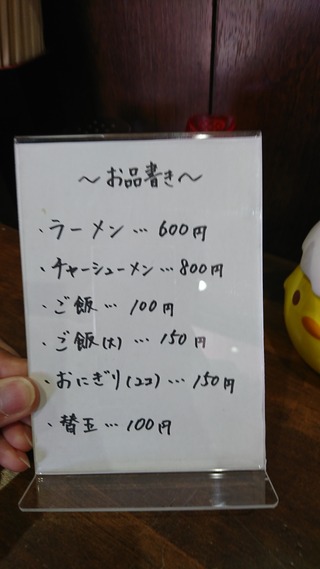 ～お品書き～
・ラーメン … 600円
・チャーシューメン … 800円
・ご飯 … 100円
・ご飯(大) … 150円
・おにぎり(2コ) … 150円
・替玉 … 100円